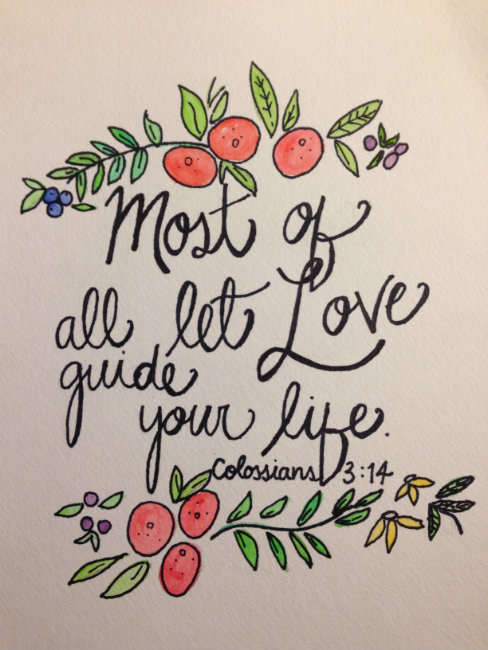 Most of
all let Love
guide
your life.
Colossians 3:14